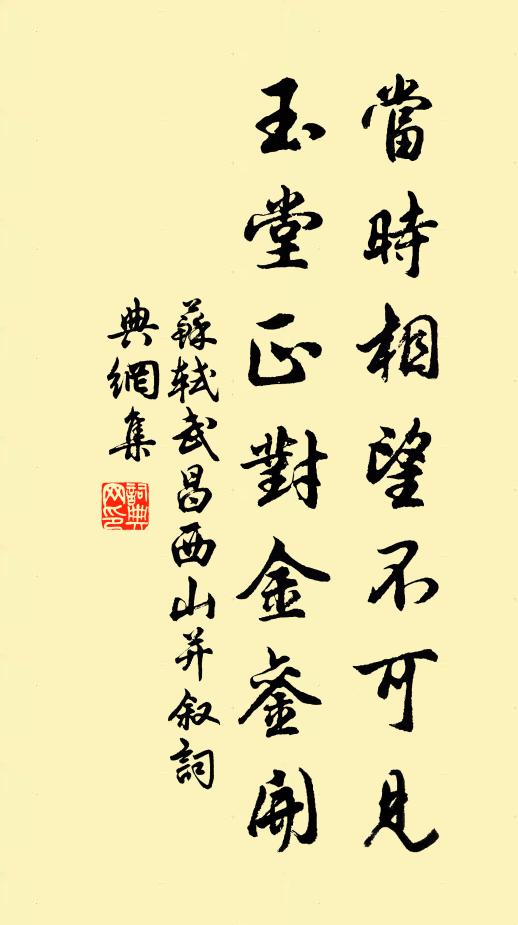 當時相望不可見
玉堂正對金銮開
蘇軾武昌西山并叙詞
典網集
詞典網印